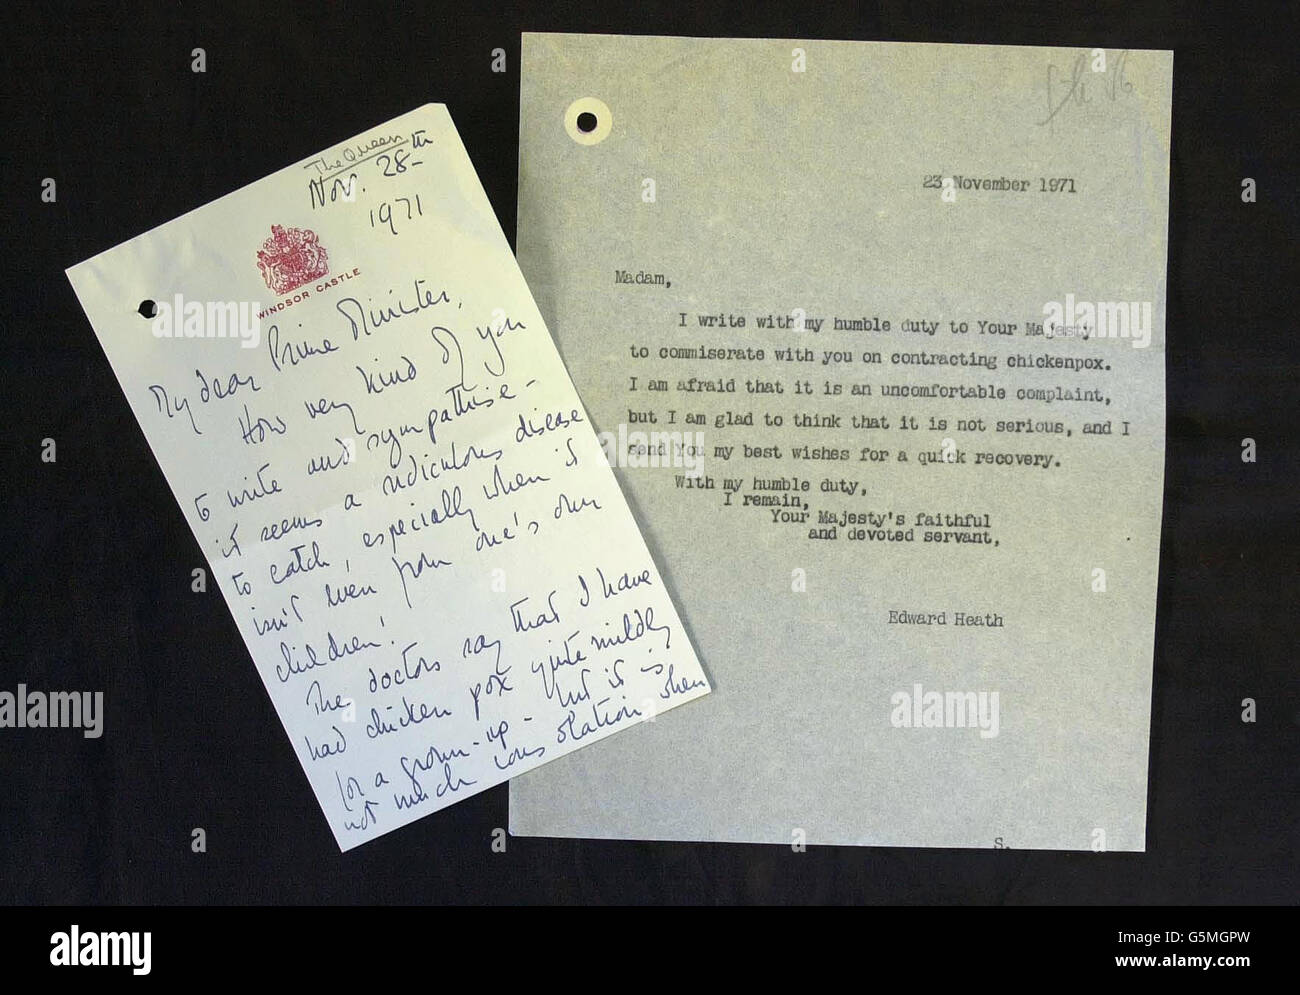 The Queen
Nov. 28th
1971
WINDSOR CASTLE
My dear Prime Minister,
How very kind of you
to write and sympathise -
it seems a ridiculous disease
to catch, especially when it
isn't even from one's own
children!
The doctors say that I have
had chicken pox quite mildly
for a grown-up - but it is
not much consolation when
23 November 1971
Madam,
I write with my humble duty to Your Majesty
to commiserate with you on contracting chickenpox.
I am afraid that it is an uncomfortable complaint,
but I am glad to think that it is not serious, and I
send You my best wishes for a quick recovery.
With my humble duty,
I remain,
Your Majesty's faithful
and devoted servant,
Edward Heath
S.
alamy
alamy
Image ID: G5MGPW
www.alamy.com